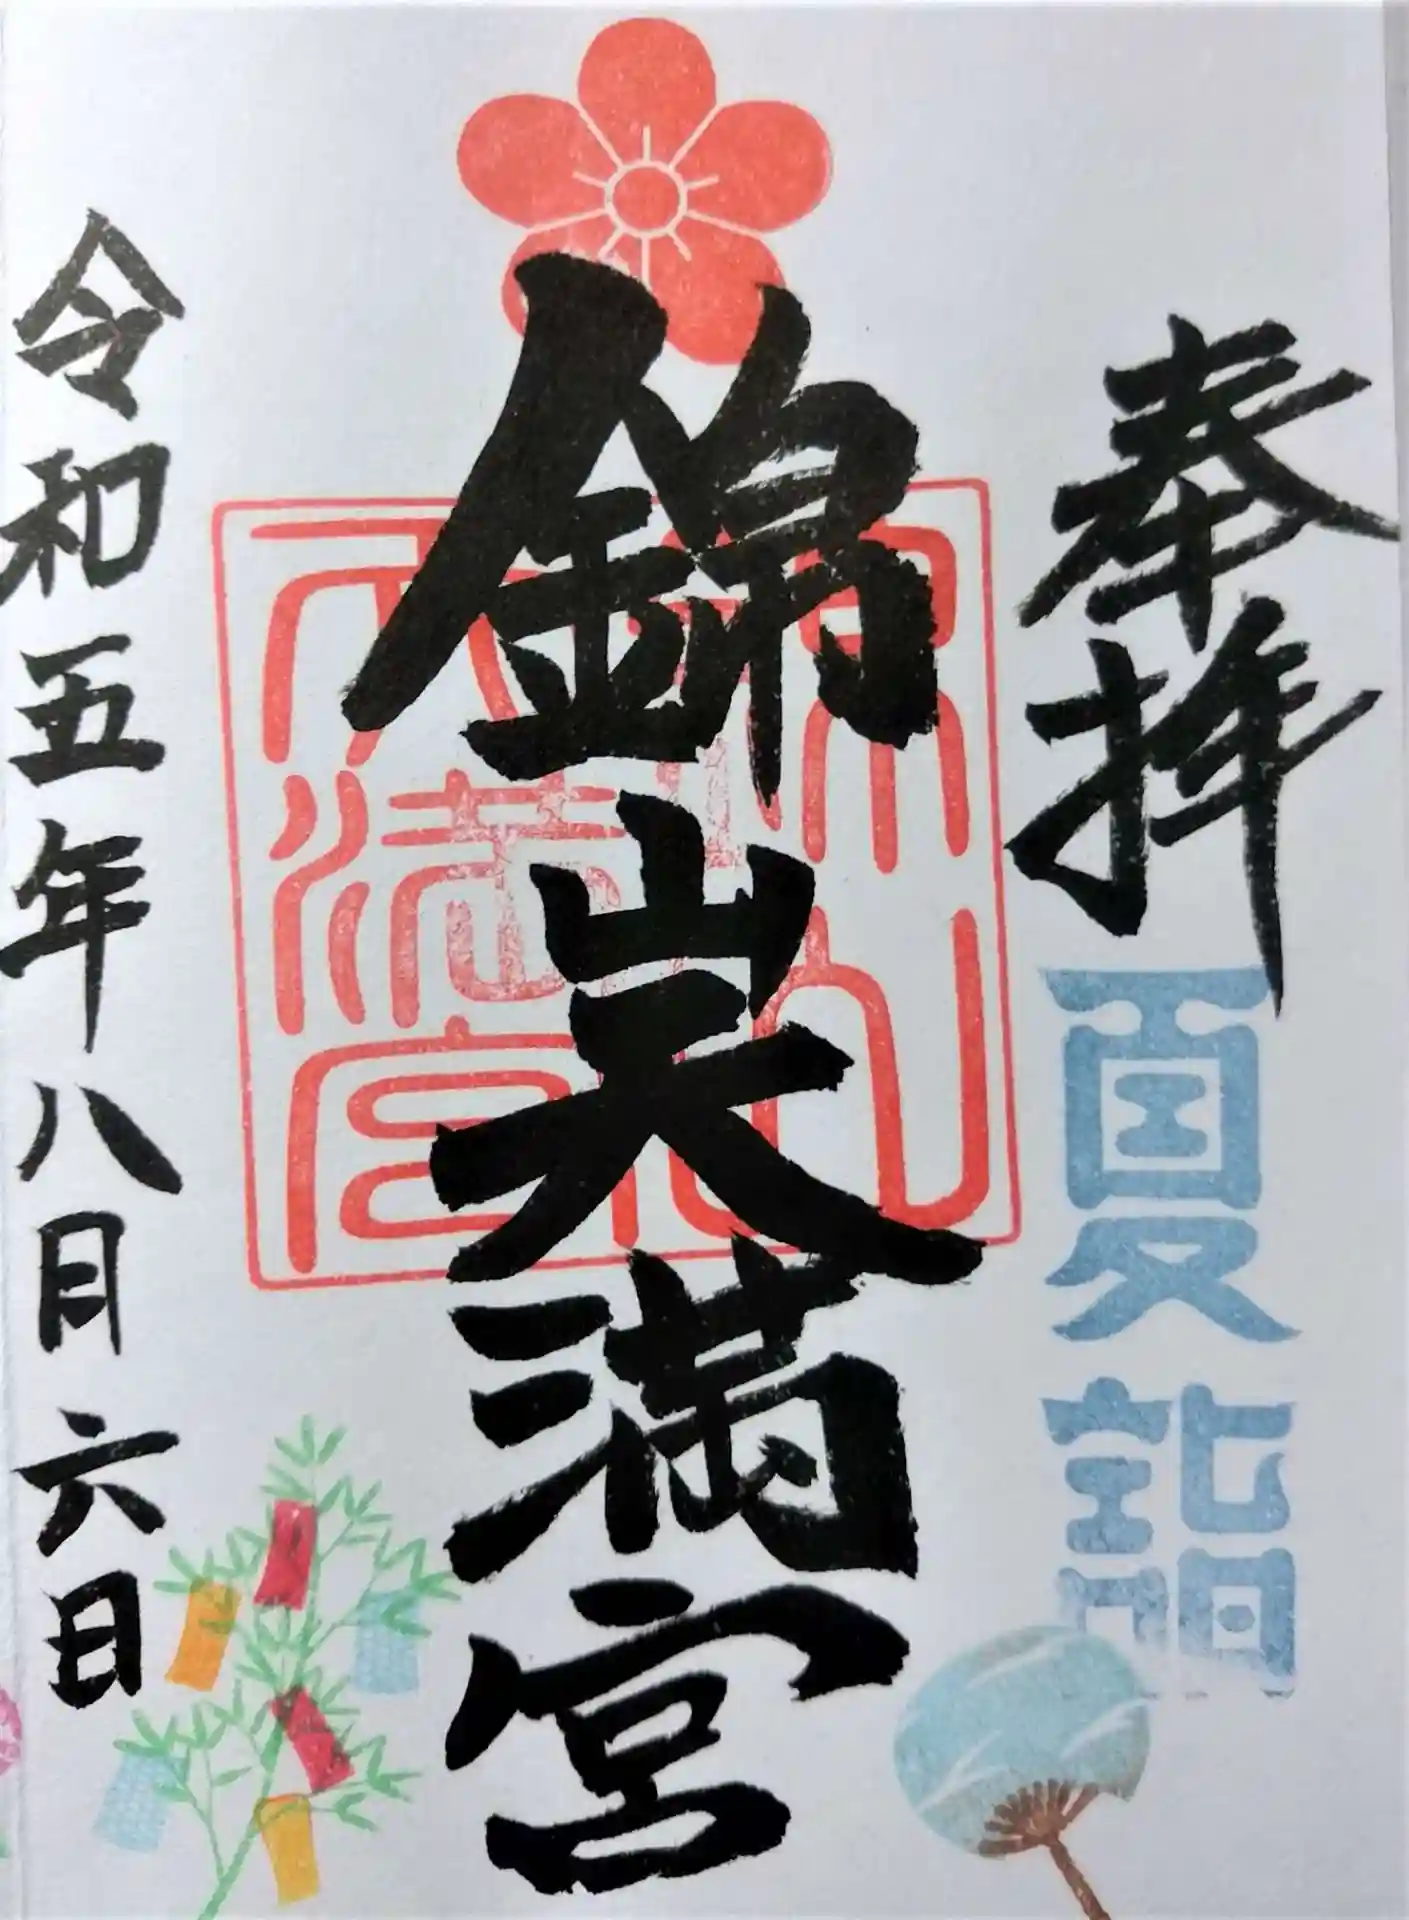 奉拝
夏詣
錦山天満宮
錦山
天満宮
令和五年八月六日